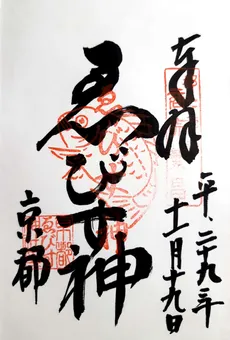 奉拝
平、二十九年
十一月十九日
ゑびす神
京都